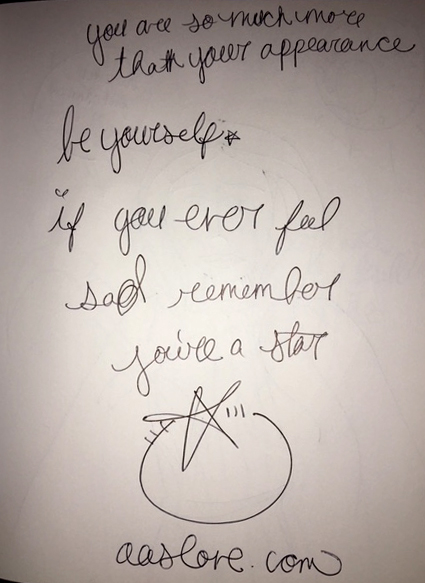 you are so much more
than your appearance
be yourself☆
if you ever feel
sad remember
you're a star
aaslove.com